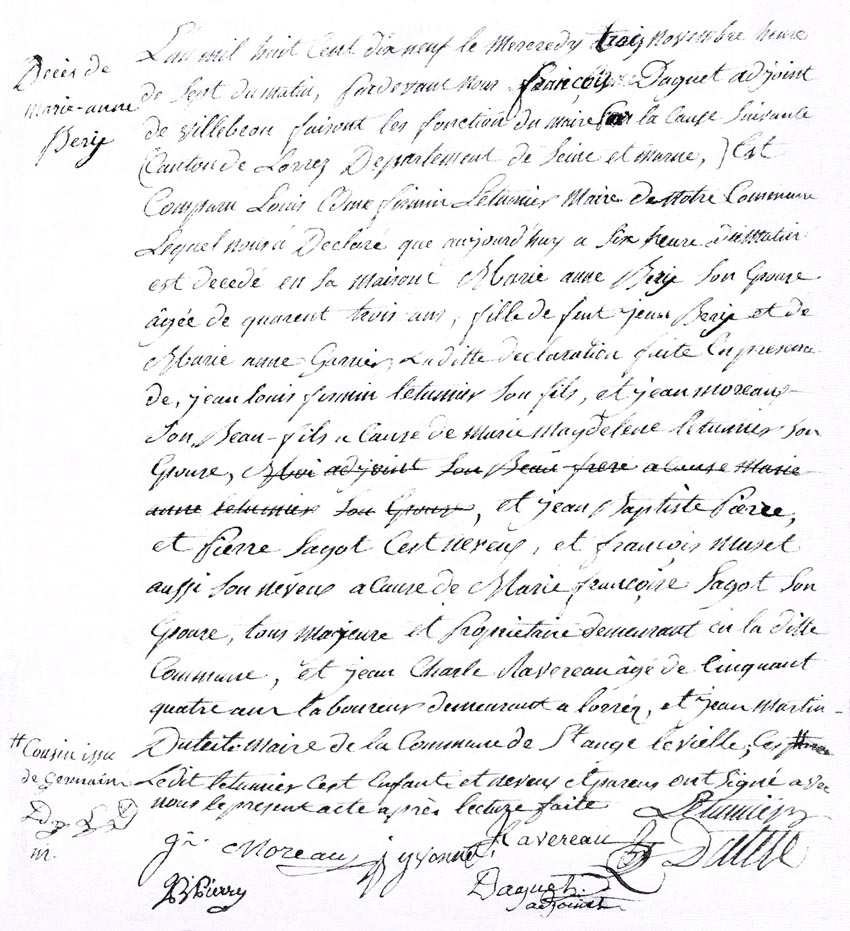 Décès de
Marie-anne
Berij
L'an mil huit Cent dix neuf le Mercredy trois novembre heure
de Sept du matin, pardevant nous françois Daquet adjoint
de villebeon faisant les fonction du maire par la Cause Suivante
(Canton de Lorrez Departement de Seine et marne,) Est
Comparu Louis Edme firmin Letumier Maire de Notre Commune
Lequel nous a Declaré que aujourd'huy a Six heure du matin
est decedé en sa maisont Marie anne Berij Son Epouse
âgée de quarent trois ans, fille de feut jean Berij et de
Marie anne Garnier, La ditte declaration faite En presence
de, jean louis firmin letumier Son fils, et jean moreau
Son Beau-fils a Cause de Marie Magdelene letumier Son
Epouse, Moi adjoint Son Beau frere a Cause Marie
anne letumier Son Epouse, et jean Baptiste Pierre,
et Pierre Sagot C'est neveux, et françois Muset
aussi Son neveux a Cause de Marie françoise Sagot Son
Epouse, tous majeure et Propriétaire demeurant en la ditte
Commune, et jean Charle Ravereau âgé de Cinquant
quatre ans laboureur demeurant a lorréz, et jean Martin
Maire de la Commune de St ange le vielle, Ces #
# Cousin issu
de Germain
Ledit letumier C'est Enfant et neveux et parens ont Signé avec
nous le present acte après lecture faite
Letumier
Moreau j yvonnet Ravereau
JB Pierry Daquet
adjoint